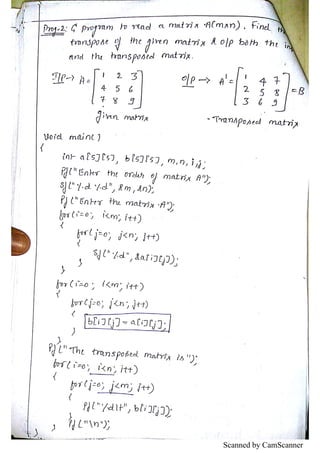 Prog:2: C program to read a matrix A(m×n). Find
transpose of the given matrix & o/p both the in
and the transposed matrix.
I/P → A = [1 2 3
4 5 6
7 8 9]
given matrix
o/p → A' = [1 4 7
2 5 8
3 6 9] = B
- Transposed matrix
Void main()
{
int a[5][5], b[5][5], m, n, i, j;
Pf("Enter the order of matrix A");
Sf("%d %d", &m, &n);
Pf("Enter the matrix A");
for(i=0; i<m; i++)
{
for(j=0; j<n; j++)
{
Sf("%d", &a[i][j]);
}
}
for(i=0; i<m; i++)
{
for(j=0; j<n; j++)
{
b[i][j] = a[i][j];
}
}
Pf("The transposed matrix is");
for(i=0; i<n; i++)
{
for(j=0; j<m; j++)
{
Pf("%d\t", b[i][j]);
}
Pf("\n");
}
}
Scanned by CamScanner